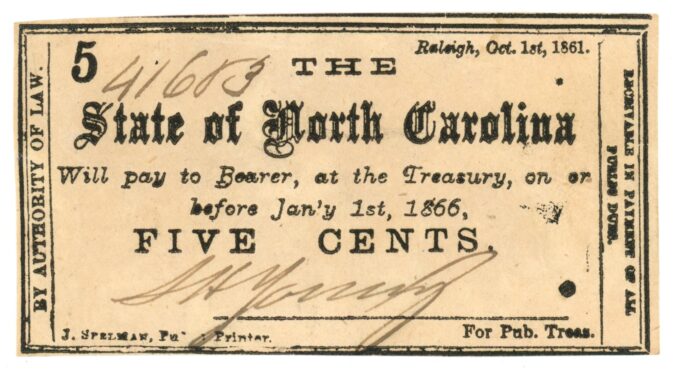 BY AUTHORITY OF LAW.
5
41683
Raleigh, Oct. 1st, 1861.
THE
State of North Carolina
Will pay to Bearer, at the Treasury, on or
before Jan'y 1st, 1866,
FIVE CENTS.
For Pub. Treas.
J. SPELMAN, Printer.
RECEIVABLE IN PAYMENT OF ALL
PUBLIC DUES.